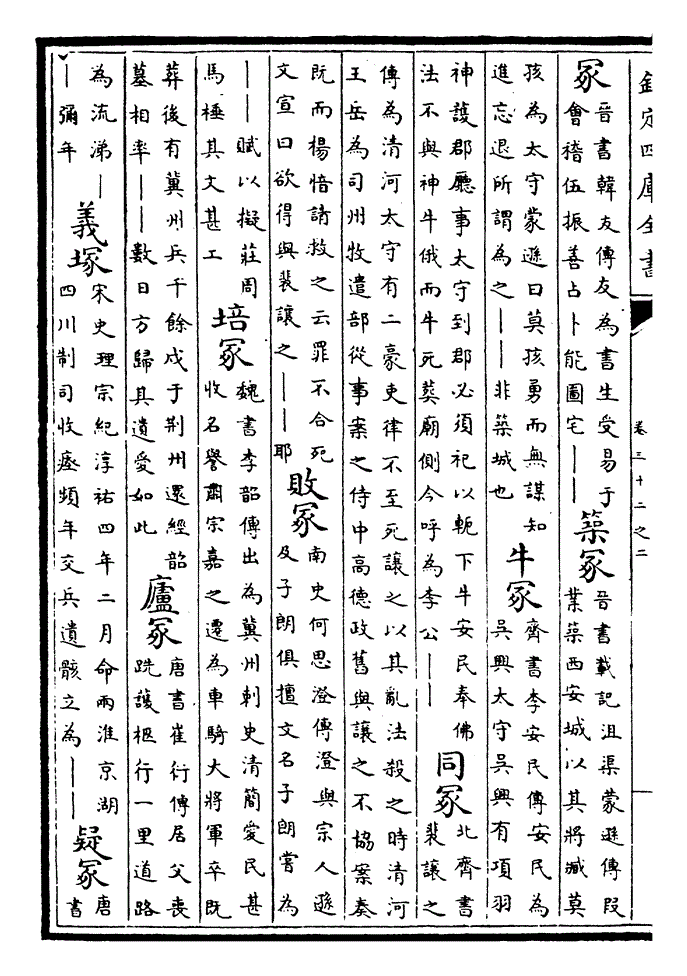 欽定四庫全書
卷三十二之二
冢
晉書韓友傳友為書生受易于
會稽伍振善占卜能圖宅——
築冢
晉書載記沮渠蒙遜傳段
業築西安城以其將臧莫
孩為太守蒙遜曰莫孩勇而無謀知
進忘退所謂為之——非築城也
牛冢
齊書李安民傳安民為
吳興太守吳興有項羽
神護郡廳事太守到郡必須祀以軛下牛安民奉佛
法不與神牛俄而牛死葬廟側今呼為李公——
同冢
北齊書
裴讓之
傳為清河太守有二豪吏律不至死讓之以其亂法殺之時清河
王岳為司州牧遣部從事案之侍中高德政舊與讓之不協案奏
既而楊愔請救之云罪不合死
文宣曰欲得與裴讓之——耶
敗冢
南史何思澄傳澄與宗人遜
及子朗俱擅文名子朗嘗為
——賦以擬莊周
馬棰其文甚工
培冢
魏書李韶傳出為冀州刺史清簡愛民甚
收名譽肅宗嘉之遷為車騎大將軍卒既
葬後有冀州兵千餘戍于荆州還經韶
墓相率——數日方歸其遺愛如此
廬冢
唐書崔衍傳居父喪
跣護柩行一里道路
為流涕—
—彌年
義塚
宋史理宗紀淳祐四年二月命兩淮京湖
四川制司收瘞頻年交兵遺骸立為——
疑冢
唐
書